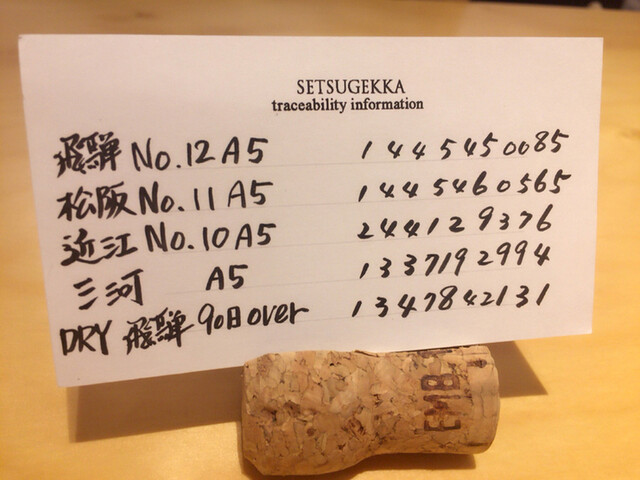 SETSUGEKKA
traceability information
飛騨 No.12 A5 1445450085
松阪 No.11 A5 1445460565
近江 No.10 A5 244129376
三河 A5 1337192994
DRY 飛騨 90日over 1347842131
EMB